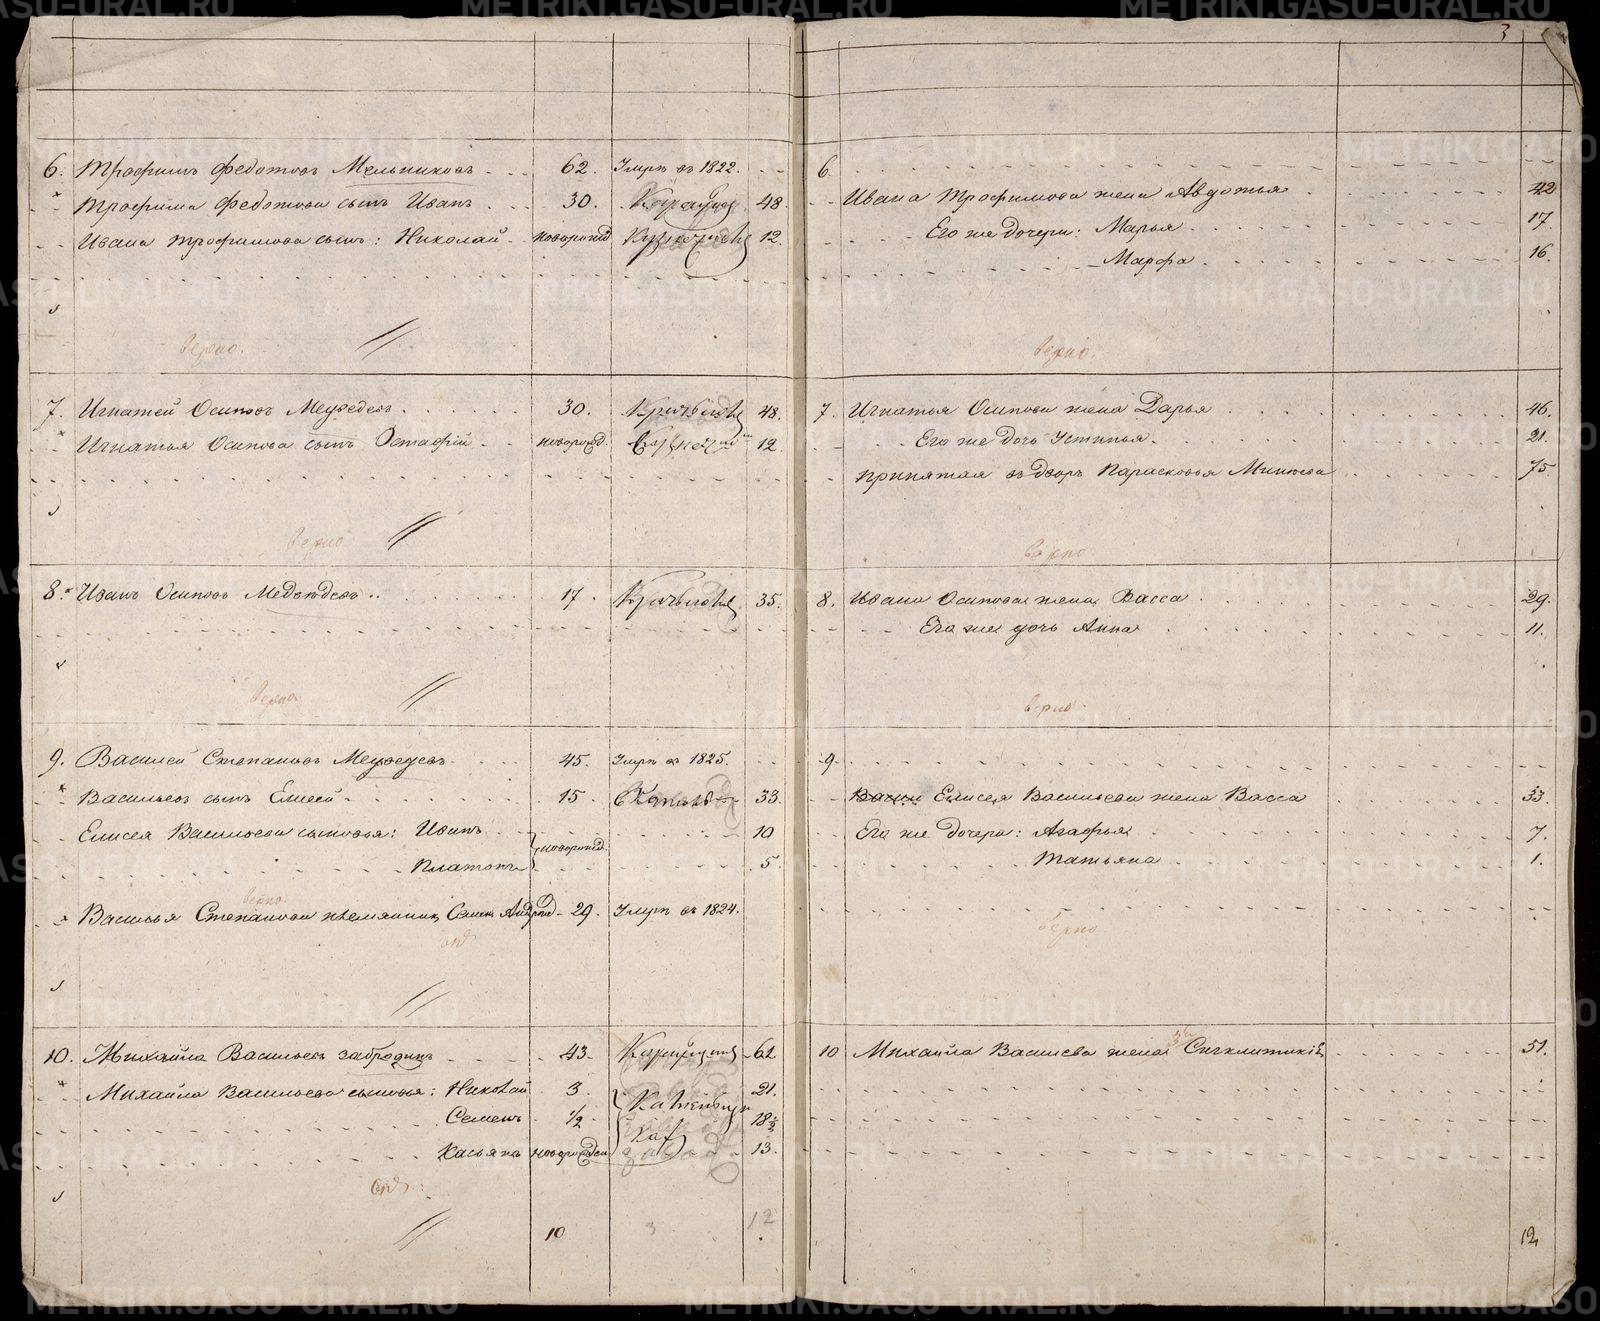 3
6. Трофимъ Федотовъ Мельниковъ 62. Умръ въ 1822.
Трофима Федотова сынъ Иванъ 30. 48.
Ивана Трофимова сынъ: Николай новорожд 12.
верно.
7. Игнатей Осиповъ Медведевъ 30. 48.
Игнатья Осипова сынъ Остафiй новорожд. 12.
верно
8. Иванъ Осиповъ Медвѣдевъ 17. 35.
верно
9. Василей Степановъ Медведевъ 45. Умръ въ 1825.
Васильевъ сынъ Елисей 15. 33.
Елисея Васильева сыновья: Иванъ 10
новорожд.
Платонъ 5.
верно.
Василья Степанова племянникъ Семенъ 29. Умръ въ 1824.
10. Михайла Васильевъ Забродинъ 43. 61
Михайла Васильева сыновья: Николай 3. 21.
Семенъ 1/2 18 1/2
Касьянъ новорожден 13.
10 3 12
6.
Ивана Трофимова жена Авдотья 42
Его же дочери: Марья 17.
Марфа 16.
верно.
7. Игнатья Осипова жена Дарья 46.
Его же дочь Устинья 21.
принятая въ дворъ Парасковья 75.
верно
8. Ивана Осипова жена Васса 29.
Его же дочь Анна 11.
верно
9.
Елисея Васильева жена Васса 33.
Его же дочери: Агафья 7.
Татьяна 1.
верно
10 Михайла Васильева жена 51.
12
METRIKI.GASO-URAL.RU